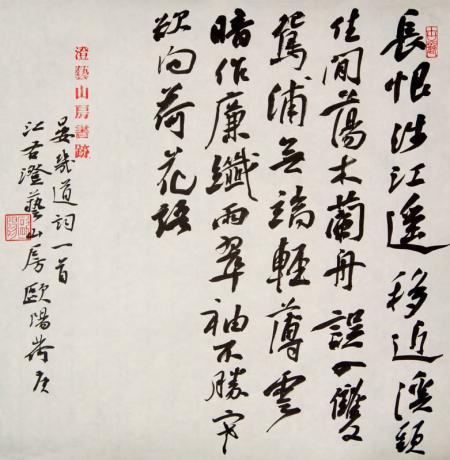 長恨涉江遥移近溪頭
住閒蕩木蘭舟誤入雙
鴛浦无端輕薄雲
暗作廉纖雨翠袖不勝寒
欲向荷花語
澄藝山房書跡
晏幾道詞一首
江右澄藝山房歐陽荷庚